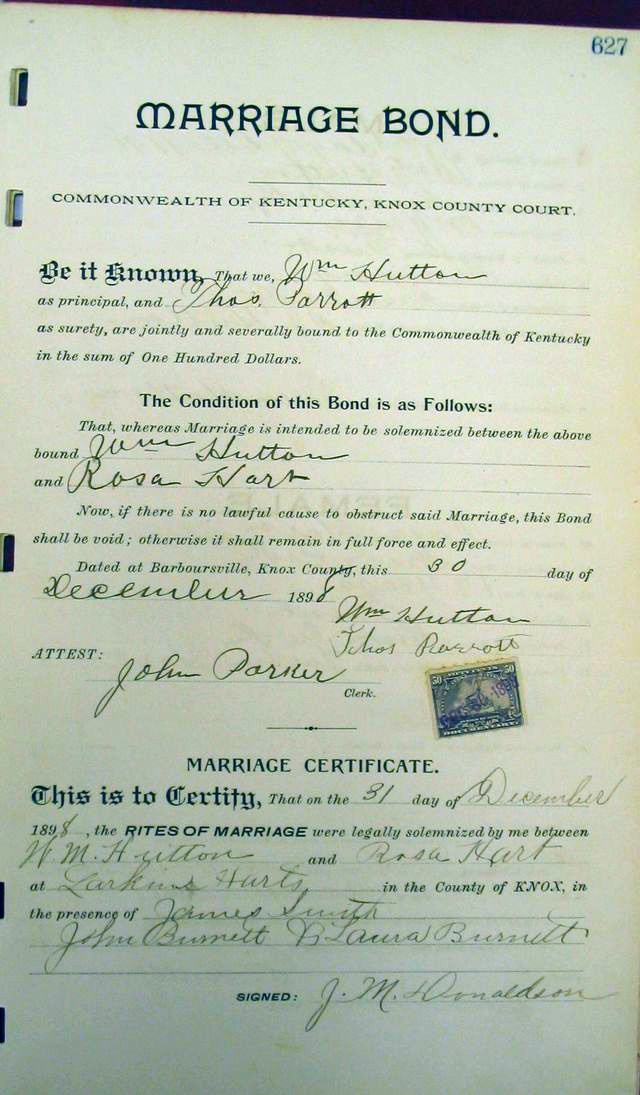 627
MARRIAGE BOND.
COMMONWEALTH OF KENTUCKY, KNOX COUNTY COURT.
Be it Known, That we, Wm Hutton
as principal, and Thos. Parrott
as surety, are jointly and severally bound to the Commonwealth of Kentucky
in the sum of One Hundred Dollars.
The Condition of this Bond is as Follows:
That, whereas Marriage is intended to be solemnized between the above
bound Wm Hutton
and Rosa Hart
Now, if there is no lawful cause to obstruct said Marriage, this Bond
shall be void; otherwise it shall remain in full force and effect.
Dated at Barboursville, Knox County, this 30 day of
December 1898
Wm Hutton
Thos Parrott
ATTEST:
John Parker
Clerk.
50 50
DOCUMENTARY
MARRIAGE CERTIFICATE.
This is to Certify, That on the 31 day of December
1898, the RITES OF MARRIAGE were legally solemnized by me between
W. M. Hutton and Rosa Hart
at Larkins Harts in the County of KNOX, in
the presence of James Smith
John Burnett Laura Burnett
SIGNED: J. M. Donaldson